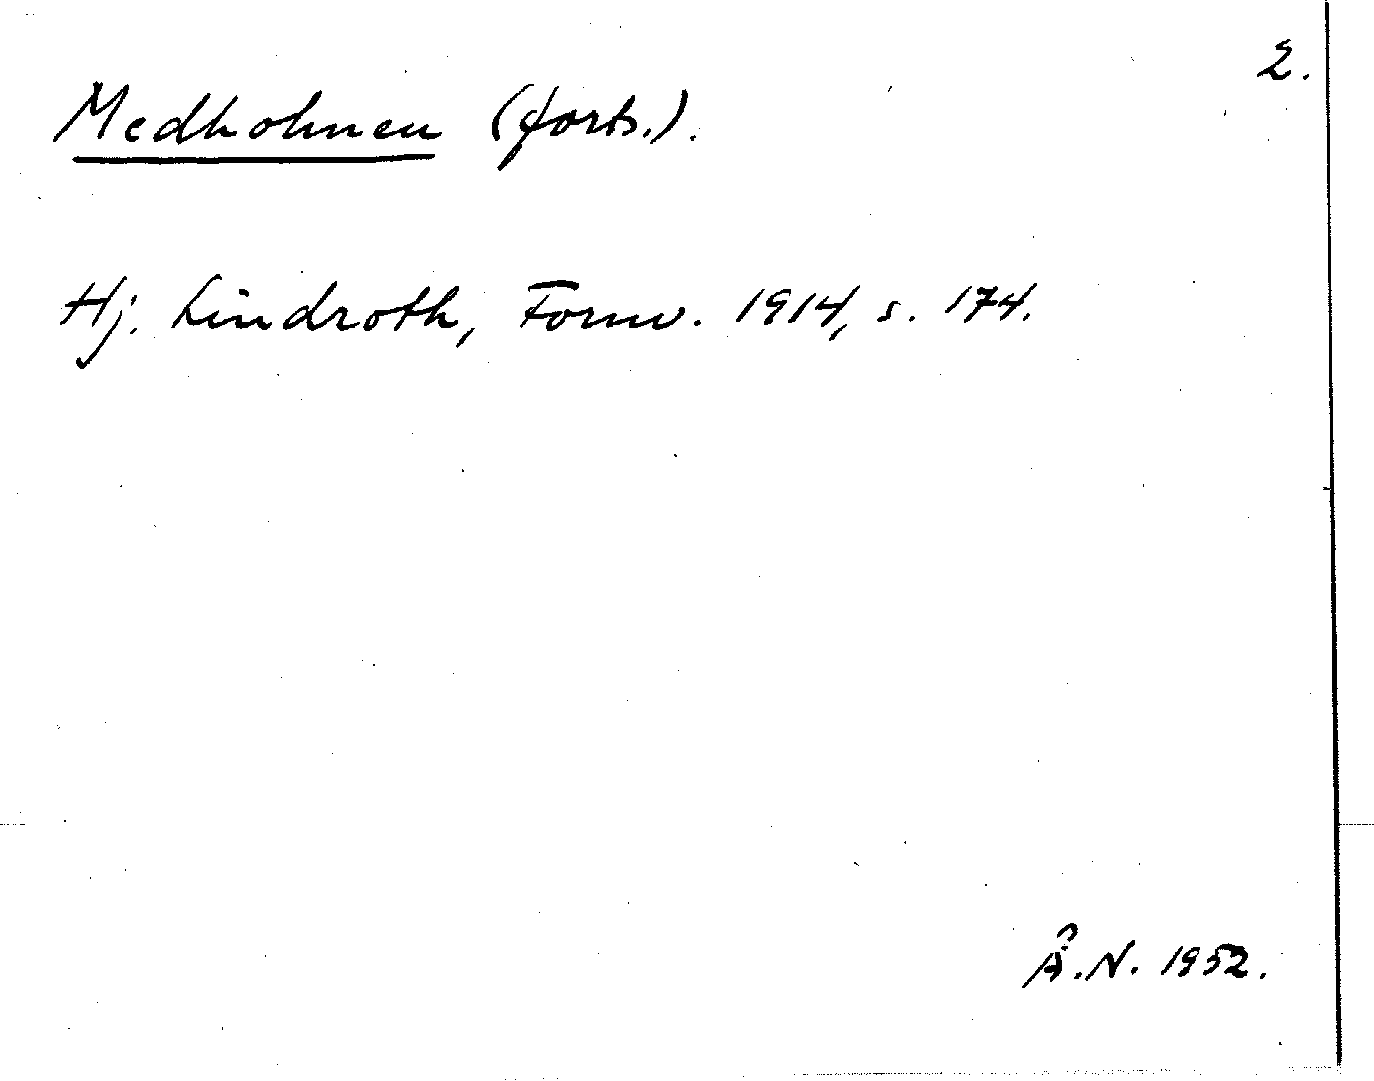 2.
Medholmen (forts.).
Hj. Lindroth, Fornv. 1914, s. 174.
Å.N. 1952.